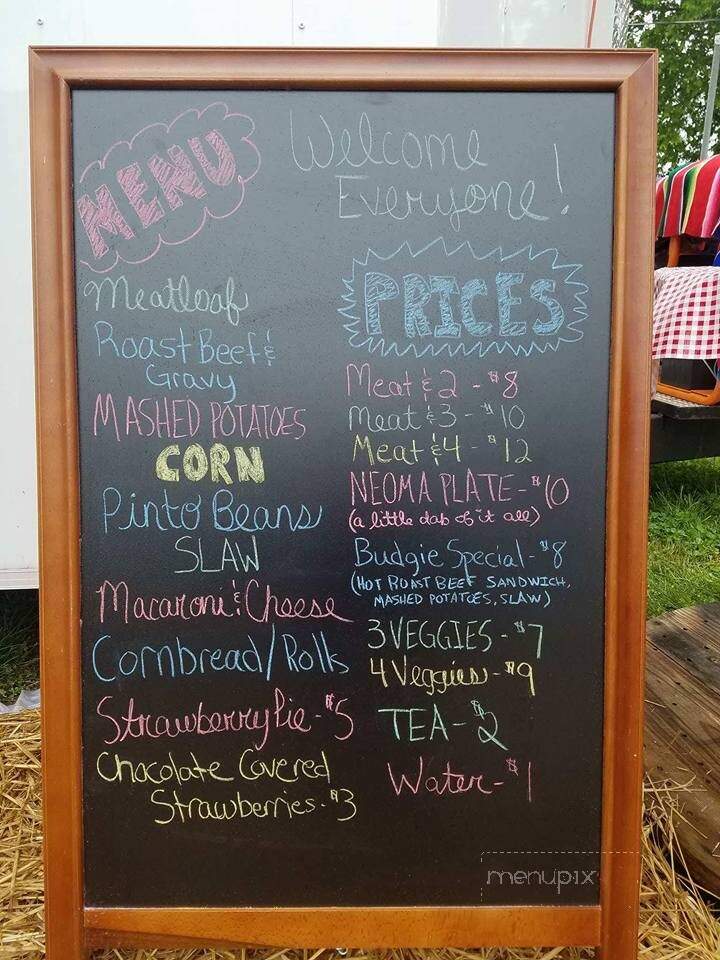 MENU
Welcome
Everyone!
Meatloaf
Roast Beef &
Gravy
MASHED POTATOES
CORN
Pinto Beans
SLAW
Macaroni & Cheese
Cornbread/Rolls
Strawberry Pie - $5
Chocolate Covered
Strawberries - $3
PRICES
Meat & 2 - $8
Meat & 3 - $10
Meat & 4 - $12
NEOMA PLATE - $10
(a little dab of it all)
Budgie Special - $8
(HOT ROAST BEEF SANDWICH,
MASHED POTATOES, SLAW)
3 VEGGIES - $7
4 Veggies - $9
TEA - $2
Water - $1
menupix